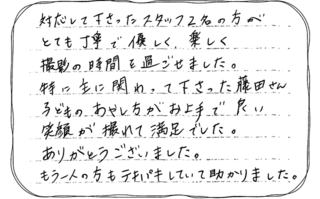 対応して下さったスタッフ2名の方が
とても丁寧で優しく、楽しく
撮影の時間を過ごせました。
特に主に関わって下さった藤田さん
子どもの、あやし方がお上手で良い
笑顔が撮れて満足でした。
ありがとうございました。
もう一人の方もテキパキしていて助かりました。